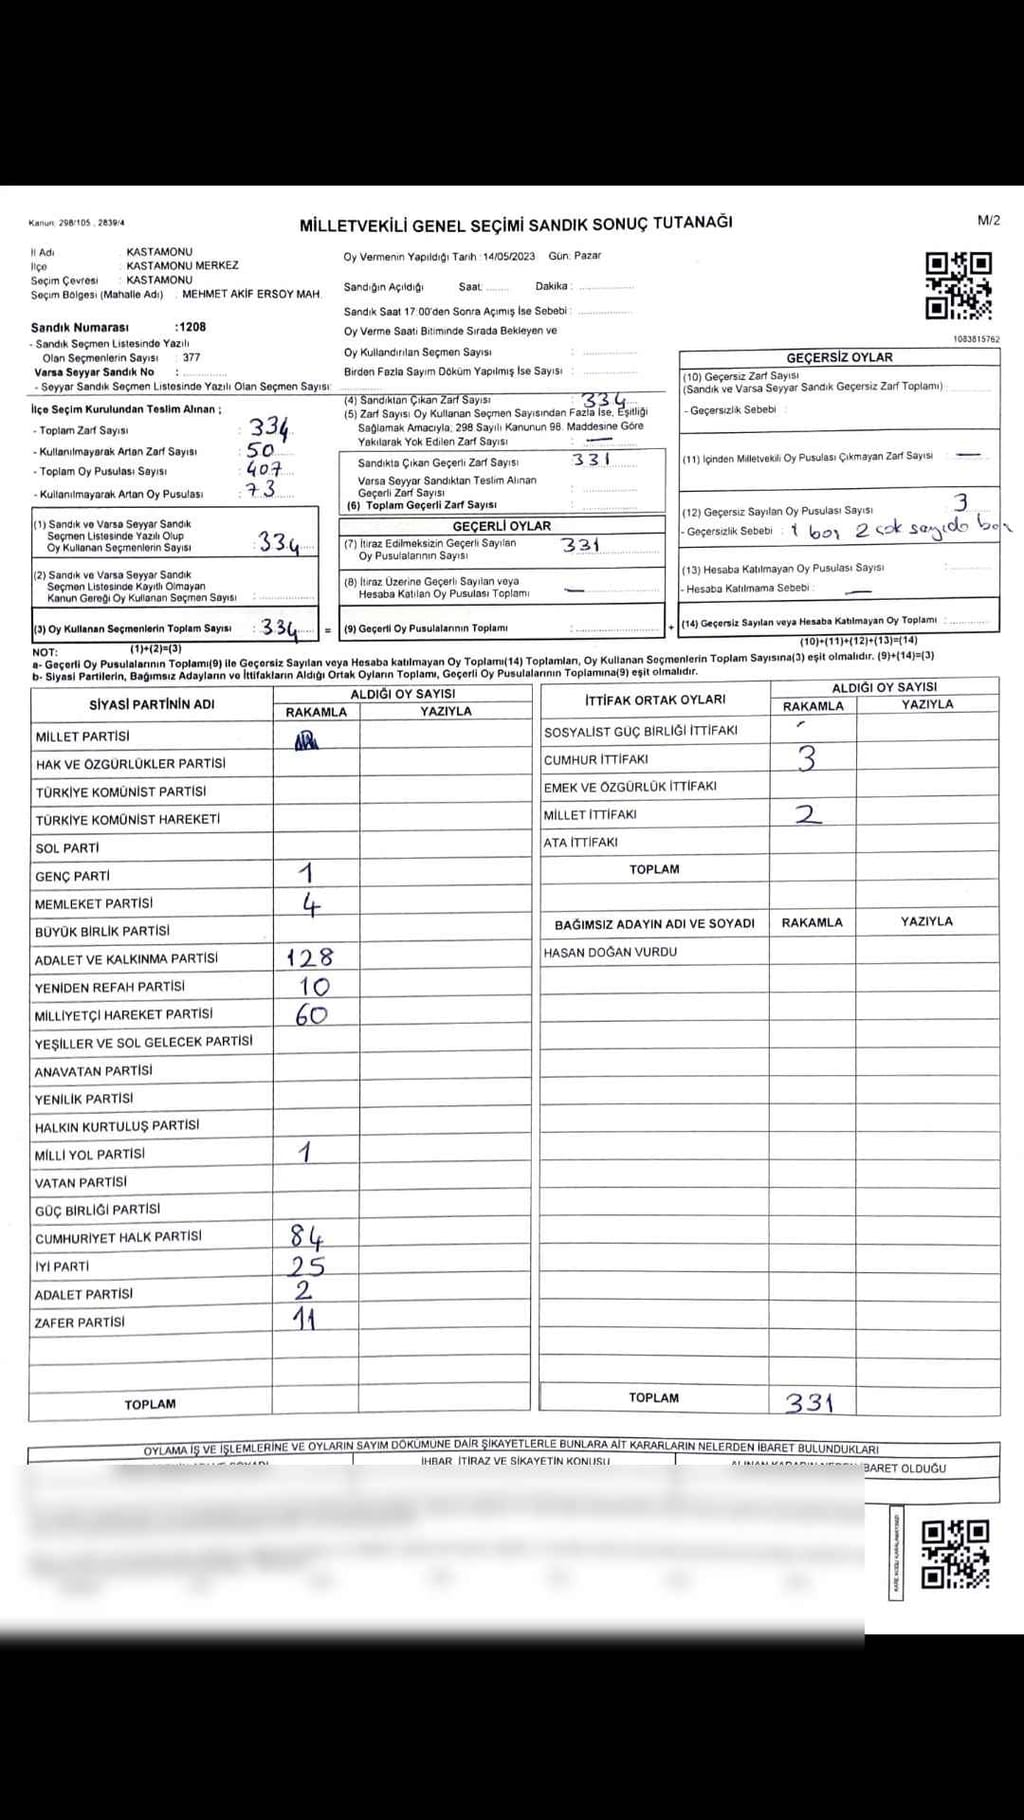 Kanun: 298/105 , 2839/4
MİLLETVEKİLİ GENEL SEÇİMİ SANDIK SONUÇ TUTANAĞI
M/2
İl Adı : KASTAMONU
İlçe : KASTAMONU MERKEZ
Seçim Çevresi : KASTAMONU
Seçim Bölgesi (Mahalle Adı) : MEHMET AKİF ERSOY MAH.
Sandık Numarası :1208
- Sandık Seçmen Listesinde Yazılı
Olan Seçmenlerin Sayısı : 377
Varsa Seyyar Sandık No :
- Seyyar Sandık Seçmen Listesinde Yazılı Olan Seçmen Sayısı:
Oy Vermenin Yapıldığı Tarih :14/05/2023 Gün: Pazar
Sandığın Açıldığı Saat: Dakika :
Sandık Saat 17:00'den Sonra Açımış İse Sebebi :
Oy Verme Saati Bitiminde Sırada Bekleyen ve
Oy Kullandırılan Seçmen Sayısı :
Birden Fazla Sayım Döküm Yapılmış İse Sayısı :
1083815762
İlçe Seçim Kurulundan Teslim Alınan ;
- Toplam Zarf Sayısı : 334
- Kullanılmayarak Artan Zarf Sayısı : 50
- Toplam Oy Pusulası Sayısı : 407
- Kullanılmayarak Artan Oy Pusulası : 73
(1) Sandık ve Varsa Seyyar Sandık
Seçmen Listesinde Yazılı Olup
Oy Kullanan Seçmenlerin Sayısı : 334
(2) Sandık ve Varsa Seyyar Sandık
Seçmen Listesinde Kayıtlı Olmayan
Kanun Gereği Oy Kullanan Seçmen Sayısı :
(3) Oy Kullanan Seçmenlerin Toplam Sayısı : 334 =
(1)+(2)=(3)
(4) Sandıktan Çıkan Zarf Sayısı : 334
(5) Zarf Sayısı Oy Kullanan Seçmen Sayısından Fazla İse, Eşitliği
Sağlamak Amacıyla, 298 Sayılı Kanunun 98. Maddesine Göre
Yakılarak Yok Edilen Zarf Sayısı : —
Sandıkta Çıkan Geçerli Zarf Sayısı : 331
Varsa Seyyar Sandıktan Teslim Alınan
Geçerli Zarf Sayısı :
(6) Toplam Geçerli Zarf Sayısı :
GEÇERLİ OYLAR
(7) İtiraz Edilmeksizin Geçerli Sayılan
Oy Pusulalarının Sayısı : 331
(8) İtiraz Üzerine Geçerli Sayılan veya
Hesaba Katılan Oy Pusulası Toplamı : —
(9) Geçerli Oy Pusulalarının Toplamı : +
GEÇERSİZ OYLAR
(10) Geçersiz Zarf Sayısı
(Sandık ve Varsa Seyyar Sandık Geçersiz Zarf Toplamı) :
- Geçersizlik Sebebi :
(11) İçinden Milletvekili Oy Pusulası Çıkmayan Zarf Sayısı : —
(12) Geçersiz Sayılan Oy Pusulası Sayısı : 3
- Geçersizlik Sebebi : 1 boş 2 çok sayıda
(13) Hesaba Katılmayan Oy Pusulası Sayısı :
- Hesaba Katılmama Sebebi : —
(14) Geçersiz Sayılan veya Hesaba Katılmayan Oy Toplamı :
(10)+(11)+(12)+(13)=(14)
NOT:
a- Geçerli Oy Pusulalarının Toplamı(9) ile Geçersiz Sayılan veya Hesaba katılmayan Oy Toplamı(14) Toplamları, Oy Kullanan Seçmenlerin Toplam Sayısına(3) eşit olmalıdır. (9)+(14)=(3)
b- Siyasi Partilerin, Bağımsız Adayların ve İttifakların Aldığı Ortak Oyların Toplamı, Geçerli Oy Pusulalarının Toplamına(9) eşit olmalıdır.
SİYASİ PARTİNİN ADI ALDIĞI OY SAYISI
RAKAMLA YAZIYLA
MİLLET PARTİSİ
HAK VE ÖZGÜRLÜKLER PARTİSİ
TÜRKİYE KOMÜNİST PARTİSİ
TÜRKİYE KOMÜNİST HAREKETİ
SOL PARTİ
GENÇ PARTİ 1
MEMLEKET PARTİSİ 4
BÜYÜK BİRLİK PARTİSİ
ADALET VE KALKINMA PARTİSİ 128
YENİDEN REFAH PARTİSİ 10
MİLLİYETÇİ HAREKET PARTİSİ 60
YEŞİLLER VE SOL GELECEK PARTİSİ
ANAVATAN PARTİSİ
YENİLİK PARTİSİ
HALKIN KURTULUŞ PARTİSİ
MİLLİ YOL PARTİSİ 1
VATAN PARTİSİ
GÜÇ BİRLİĞİ PARTİSİ
CUMHURİYET HALK PARTİSİ 84
İYİ PARTİ 25
ADALET PARTİSİ 2
ZAFER PARTİSİ 11
TOPLAM
İTTİFAK ORTAK OYLARI ALDIĞI OY SAYISI
RAKAMLA YAZIYLA
SOSYALİST GÜÇ BİRLİĞİ İTTİFAKI
CUMHUR İTTİFAKI 3
EMEK VE ÖZGÜRLÜK İTTİFAKI
MİLLET İTTİFAKI 2
ATA İTTİFAKI
TOPLAM
BAĞIMSIZ ADAYIN ADI VE SOYADI RAKAMLA YAZIYLA
HASAN DOĞAN VURDU
TOPLAM 331
OYLAMA İŞ VE İŞLEMLERİNE VE OYLARIN SAYIM DÖKÜMÜNE DAİR ŞİKAYETLERLE BUNLARA AİT KARARLARIN NELERDEN İBARET BULUNDUKLARI
İHBAR, İTİRAZ VE ŞİKAYETİN KONUSU
İBARET OLDUĞU